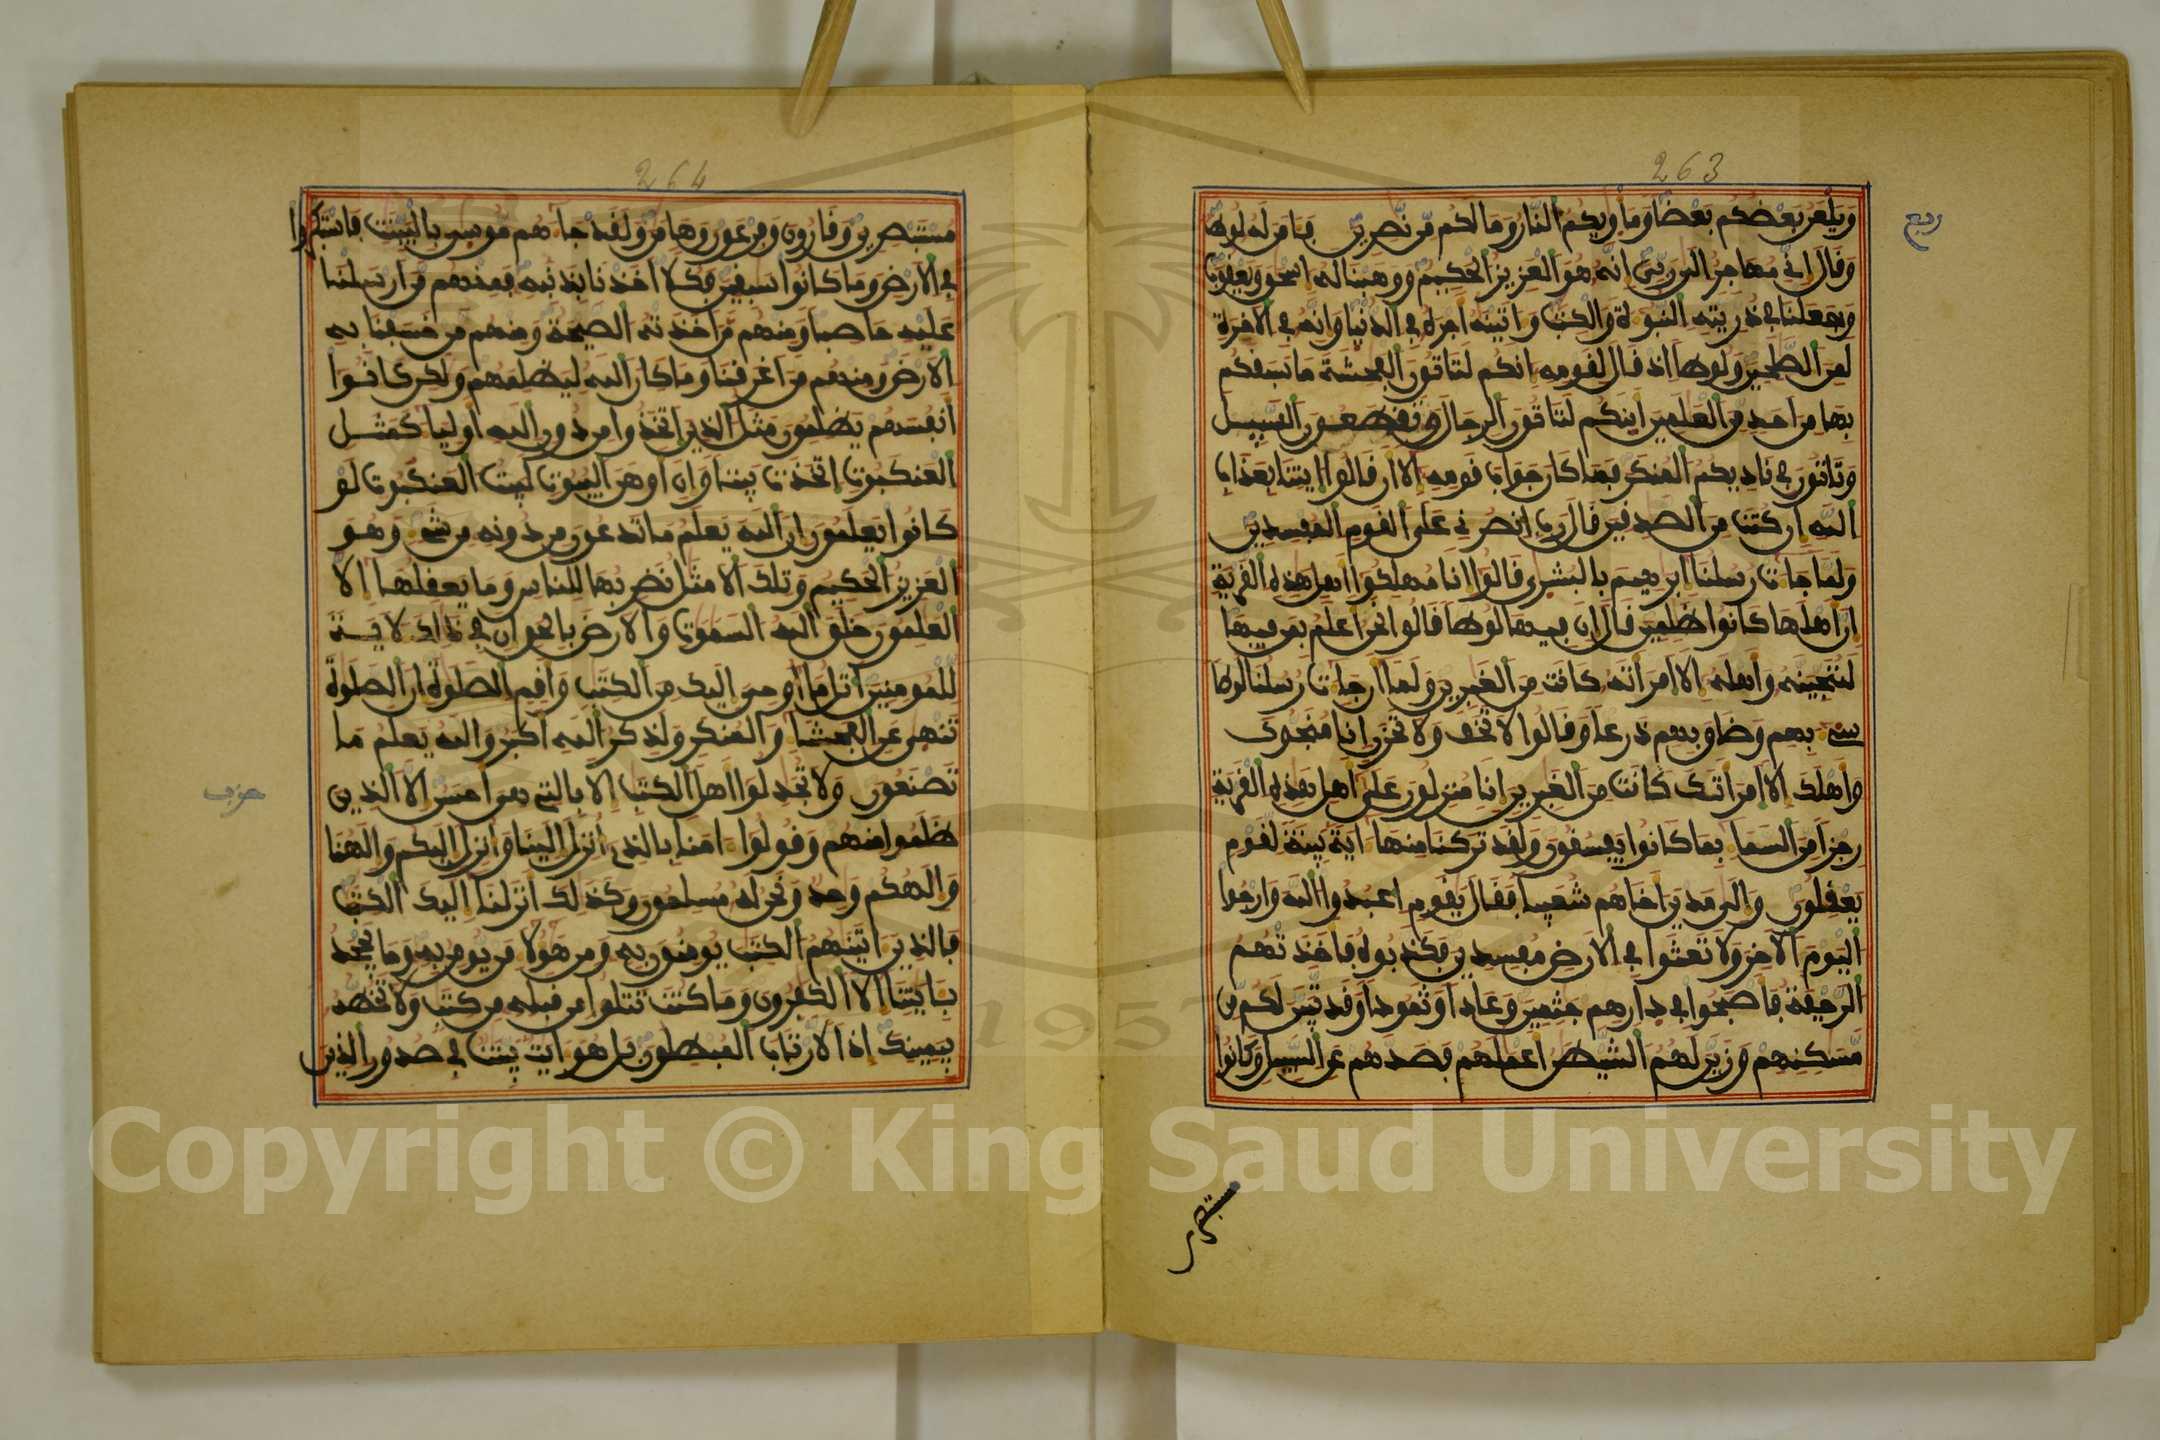 263
ربع
ويلعن بعضكم بعضا وماويكم النار وما لكم من نصرين فامن له لوط
وقال اني مهاجر الى ربي انه هو العزيز الحكيم ووهبنا له اسحق ويعقوب
وجعلنا في ذريته النبوة والكتب واتينه اجره في الدنيا وانه في الاخرة
لمن الصلحين ولوطا اذ قال لقومه انكم لتاتون الفحشة ما سبقكم
بها من احد من العلمين اينكم لتاتون الرجال وتقطعون السبيل
وتاتون في ناديكم المنكر فما كان جواب قومه الا ان قالوا ايتنا بعذاب
الله ان كنت من الصدقين قال رب انصرني على القوم المفسدين
ولما جات رسلنا ابرهيم بالبشرى قالوا انا مهلكوا اهل هذه القرية
ان اهلها كانوا ظلمين قال ان فيها لوطا قالوا نحن اعلم بمن فيها
لننجينه واهله الا امراته كانت من الغبرين ولما ان جات رسلنا لوطا
سيء بهم وضاق بهم ذرعا وقالوا لا تخف ولا تحزن انا منجوك
واهلك الا امراتك كانت من الغبرين انا منزلون على اهل هذه القرية
رجزا من السما بما كانوا يفسقون ولقد تركنا منها اية بينة لقوم
يعقلون والى مدين اخاهم شعيبا فقال يقوم اعبدوا الله وارجوا
اليوم الاخر ولا تعثوا في الارض مفسدين فكذبوه فاخذتهم
الرجفة فاصبحوا في دارهم جثمين وعادا وثمودا وقد تبين لكم من
مسكنهم وزين لهم الشيطن اعملهم فصدهم عن السبيل وكانوا
مستبصر
264
مستبصرين وقارون وفرعون وهامن ولقد جاهم موسى بالبينت فاستكبروا
في الارض وما كانوا سبقين فكلا اخذنا بذنبه فمنهم من ارسلنا
عليه حاصبا ومنهم من اخذته الصيحة ومنهم من خسفنا به
الارض ومنهم من اغرقنا وما كان الله ليظلمهم ولكن كانوا
انفسهم يظلمون مثل الذين اتخذوا من دون الله اوليا كمثل
العنكبوت اتخذت بيتا وان اوهن البيوت لبيت العنكبوت لو
كانوا يعلمون ان الله يعلم ما تدعون من دونه من شيء وهو
العزيز الحكيم وتلك الامثل نضربها للناس وما يعقلها الا
العلمون خلق الله السموت والارض بالحق ان في ذلك لاية
للمومنين اتل ما اوحي اليك من الكتب واقم الصلوة ان الصلوة
تنهى عن الفحشا والمنكر ولذكر الله اكبر والله يعلم ما
تصنعون ولا تجدلوا اهل الكتب الا بالتي هي احسن الا الذين
حزب
ظلموا منهم وقولوا امنا بالذي انزل الينا وانزل اليكم والهنا
والهكم وحد ونحن له مسلمون وكذلك انزلنا اليك الكتب
فالذين اتينهم الكتب يومنون به ومن هولا من يومن به وما يجحد
بايتنا الا الكفرون وما كنت تتلوا من قبله من كتب ولا تخطه
بيمينك اذا لارتاب المبطلون بل هو ايت بينت في صدور الذين
1957
Copyright © King Saud University